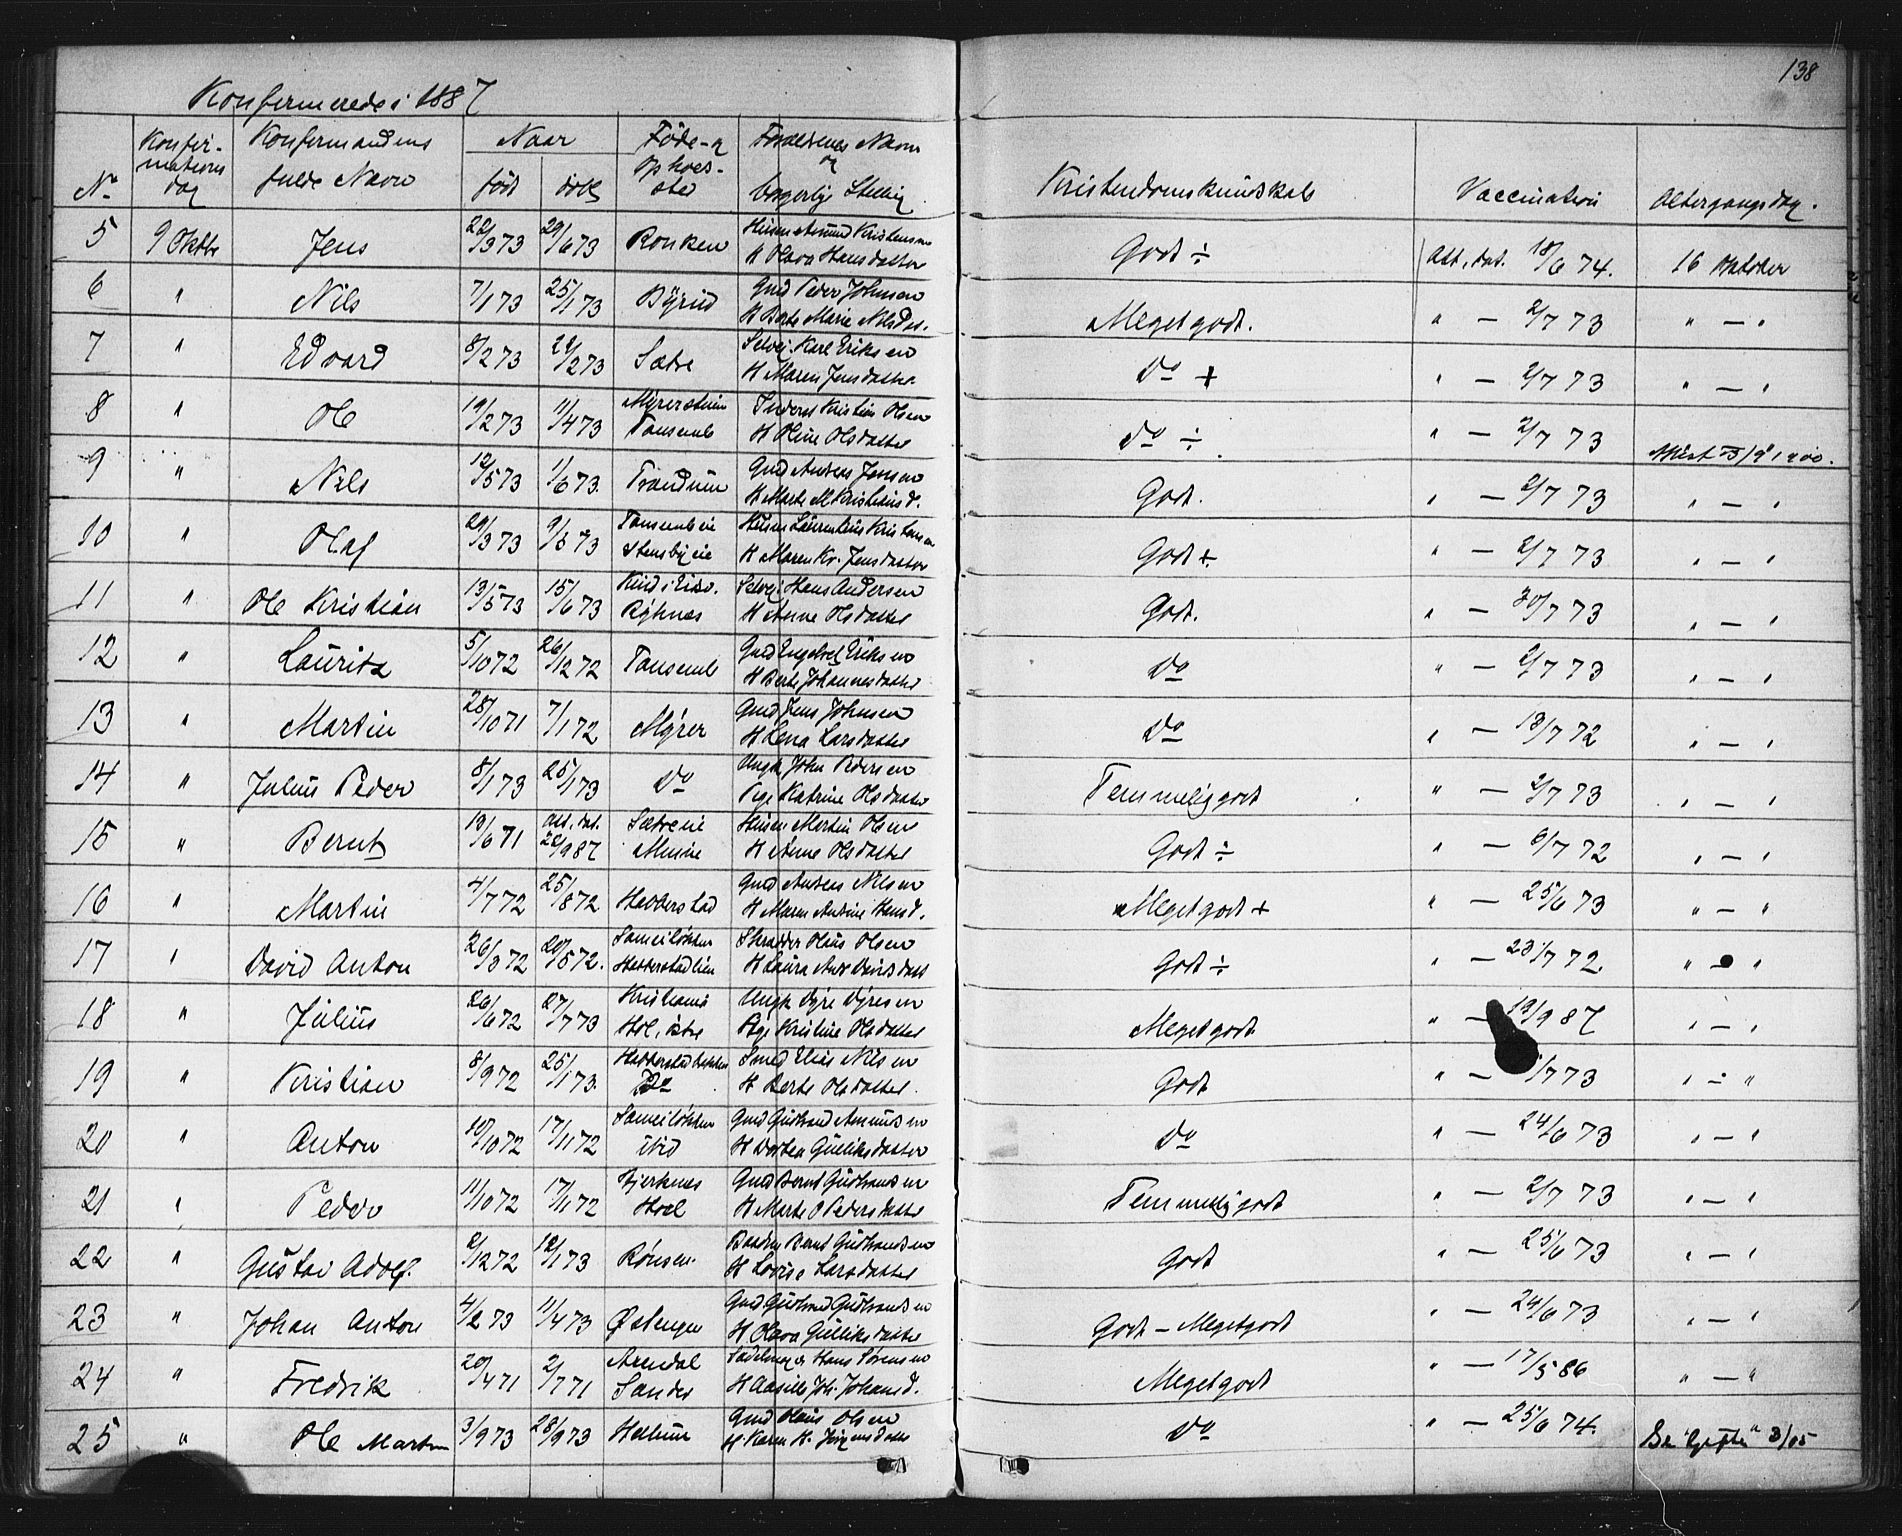 138
Konfirmerede i 1887
No Konfirmations dag Konfirmandens fulde Navn Naar født døbt Føde- og Opholdssted Forældrenes Navn og borgerlige Stilling Kristendomskundskab Vaccination Altergangsdag.
5 9 Oktbr Jens 22/3 73 29/6 73 Ronken Husm Amund Kristensen H Olava Hansdatter Godt ÷ Att. dat. 18/6 74. 16 Oktober
6 " Nils 7/1 73 25/1 73 Byrud Gmd Peder Johnsen H Berte Marie Nilsdat. Meget godt. " — 2/7 73 " — "
7 " Edvard 8/2 73 22/2 73 Sætre Selvej. Karl Eriksen H Maren Jensdatter. Do + " — 2/7 73 " — "
8 " Ole 19/2 73 11/4 73 Tønsemb Kristian Olsen H Oline Olsdatter Do ÷ " — 2/7 73
9 " Nils 12/5 73 1/6 73 Trandum Gmd Anders Jensen H Marte M Kristiansd. Godt. " — 2/7 73 " — "
10 " Olaf 29/3 73 9/6 73 Stensbyeie Husm Laurentius Kristensen H Maren Kr. Jensdatter Godt + " — 2/7 73 " — "
11 " Ole Kristian 13/5 73 15/6 73 Selvej. Hans Andersen H Anne Olsdatter Godt. " — 30/7 73 " — "
12 " Lauritz 5/10 72 26/12 72 Tønsemb Gmd Engebret Eriksen H Berte Johannesdatter Do " — 2/7 73 " — "
13 " Martin 28/10 71 7/1 72 Myrer Gmd Jens Johnsen H Lena Larsdatter Do " — 13/7 72 " — "
14 " Julius Peder 8/1 73 25/1 73 Do Ungk John Pedersen Pige Katrine Olsdatter Temmelig godt " — 2/7 73 " — "
15 " Bernt 13/6 71 Att. dat. 22/9 87 Sætreeie Husm Martin Olsen H Anne Olsdatter Godt ÷ " — 6/7 72 " — "
16 " Martin 4/7 72 25/8 72 Habberstad Gmd Anders Nilsen H Maren Andrine Hansd. Meget godt + " — 25/6 73 " — "
17 " David Anton 26/3 72 20/5 72. Skrædder Olaus Olsen H Laura Davidsdatt Godt ÷ " — 23/7 72 " — "
18 " Julius 26/6 72 27/7 73 Kristiania Hol, østre Ungk Dyre Dyresen Pige Kristine Olsdatter Meget godt " — 19/9 87 " — "
19 " Kristian 8/9 72 25/1 73. Habberstadbakken Do Smed Elias Nilsen H Berte Olsdatter. Godt " — /7 73 " — "
20 " Anton 10/10 72 17/11 72 ibid Gmd Gudbrand Amundsen H Dortea Gulliksdatter Do " — 24/6 73 " — "
21 " Peder 11/10 72 17/11 72 Bjerknes Hoel Gmd Bernt Gudbrandsen H Marte O Pedersdatter Temmelig godt " — 2/7 73 " — "
22 " Gustav Adolf. 2/12 72 12/1 73 Rønsen. Baadm Bernt Gudbrandsen H Lovise Larsdatter Godt " — 25/6 73 " — "
23 " Johan Anton 4/2 73 11/4 73 Østengen Gmd Gudbrand Gudbrandsen H Olava Gulliksdatter Godt – Meget godt " — 24/6 73 " — "
24 " Fredrik 20/4 71 2/7 71 Arendal Sander Sadelmager Hans Sørensen H Aasille Joh. Johansd. Meget godt " — 17/5 86 " — "
25 " Ole Martin 3/9 73 28/9 73 Gmd Olaus Olsen H. Karen H. Jørgensdatter Do " — 25/6 74. Se "Gifte" 3/05